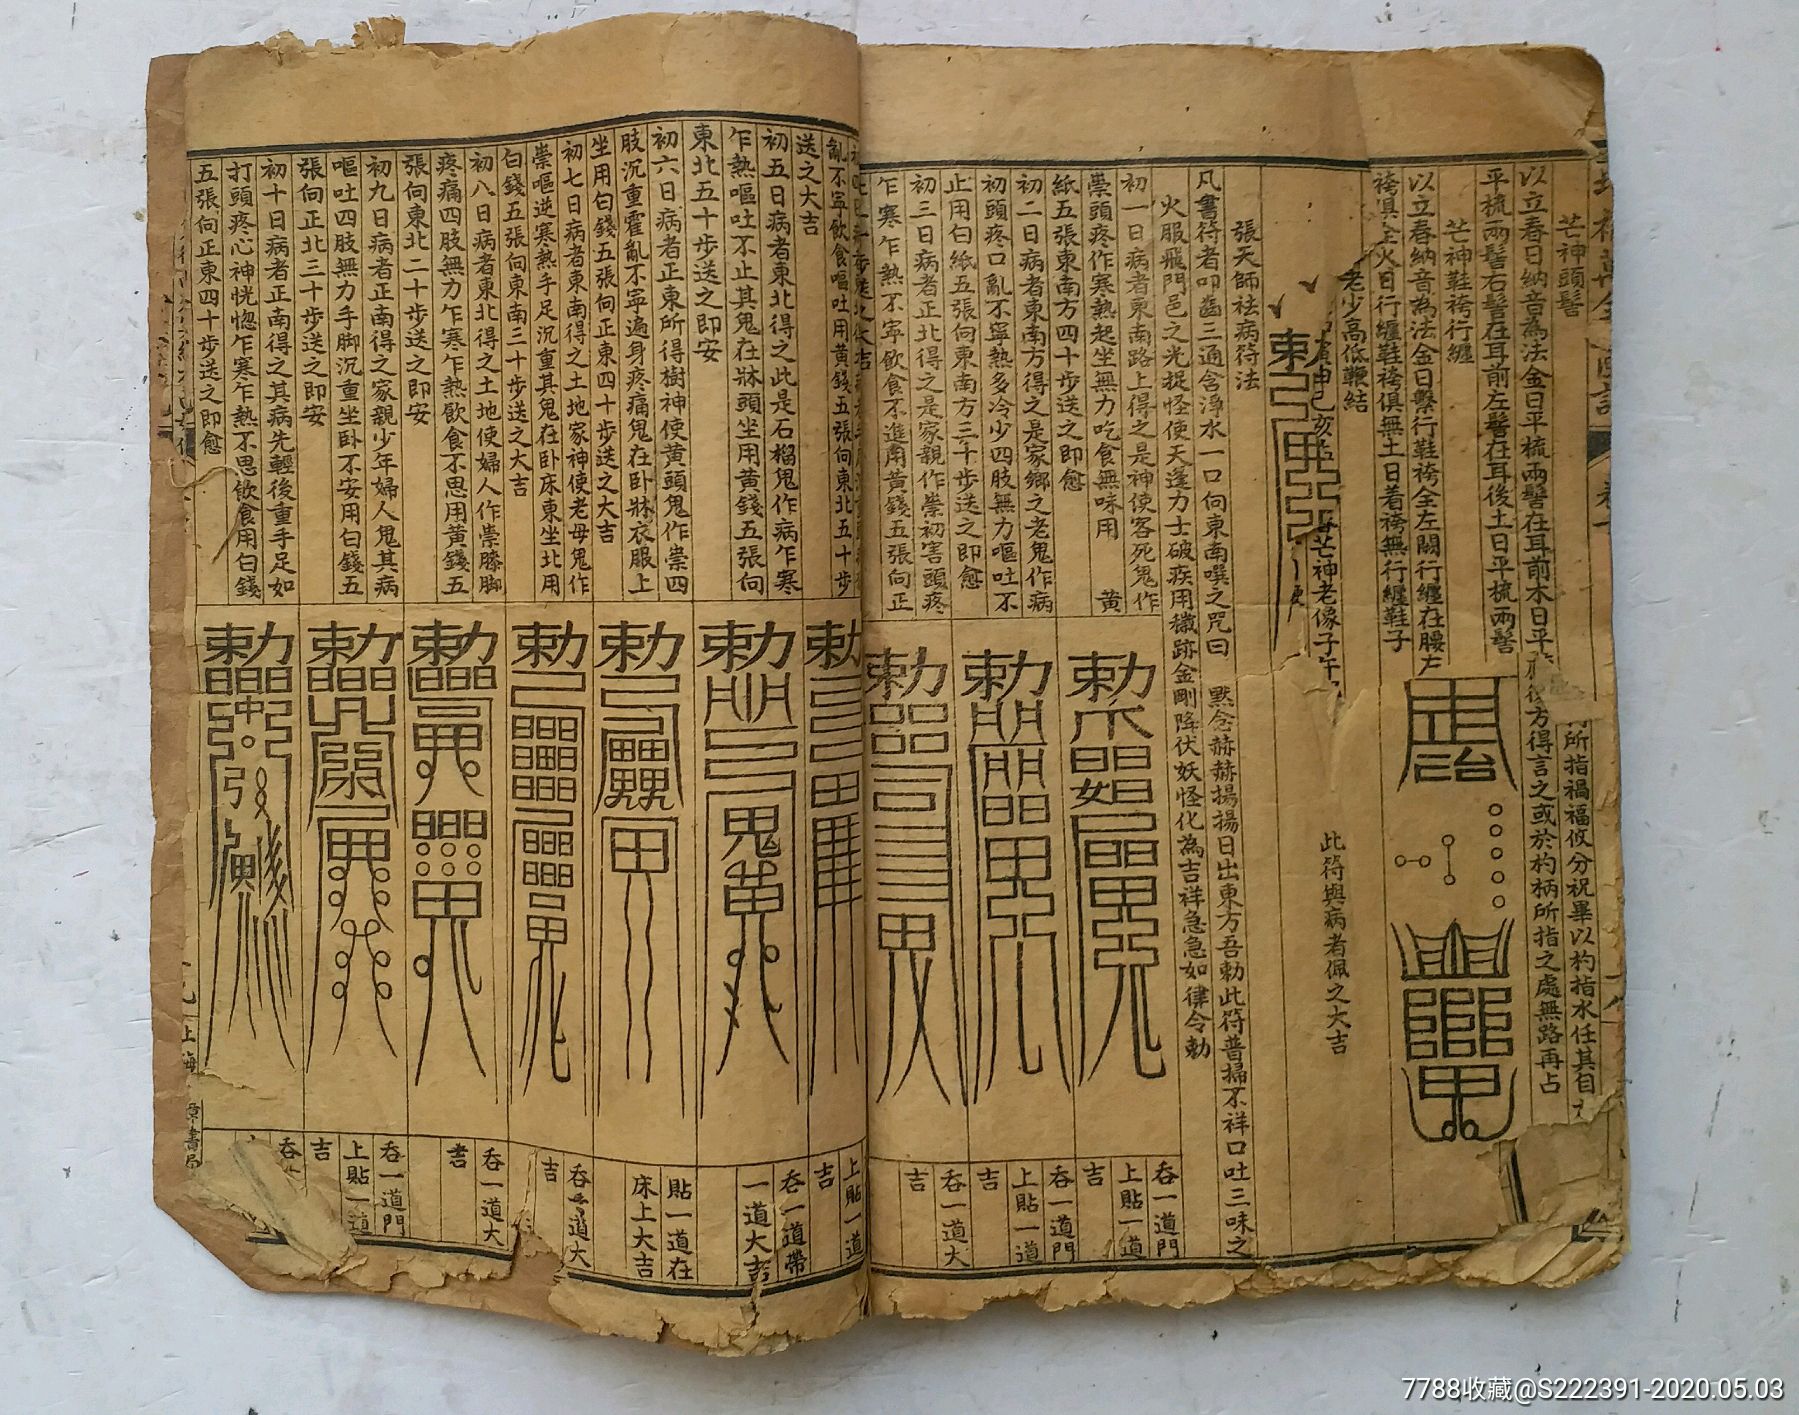 芒神頭髻
以立春日納音為法金日平梳兩髻在耳前木日平
平梳兩髻右髻在耳前左髻在耳後土日平梳兩髻
芒神鞋袴行纏
以立春納音為法金日繫行鞋袴全左闗行纏在腰左
袴俱全火日行纏鞋袴俱無土日着袴無行纏鞋子
老少高低鞭結
芒神老像子午
所指禍福攸分祝畢以杓指水任其自
方得言之或於杓柄所指之處無路再占
此符與病者佩之大吉
張天師祛病符法
凡書符者叩齒三通含淨水一口向東南噀之咒曰 默念赫赫揚揚日出東方吾勅此符普掃不祥口吐三味之
火服飛門邑之光捉怪使天逢力士破疾用穢跡金剛降伏妖怪化為吉祥急急如律令勅
初一日病者東南路上得之是神使客死鬼作
祟頭疼作寒熱起坐無力吃食無味用 黄
紙五張東南方四十步送之即愈
勅
吞一道門
上貼一道
吉
初二日病者東南方得之是家鄉之老鬼作病
初頭疼口亂不寧熱多冷少四肢無力嘔吐不
止用白紙五張向東南方三十步送之即愈
勅
吞一道門
上貼一道
吉
初三日病者正北得之是家親作祟初害頭疼
乍寒乍熱不寧飲食不進用黄錢五張向正
勅
吞一道大
吉
亂不寧飲食嘔吐用黄錢五張向東北五十步
送之大吉
勅
上貼一道
吉
初五日病者東北得之此是石榴鬼作病乍寒
乍熱嘔吐不止其鬼在牀頭坐用黄錢五張向
東北五十步送之即安
勅
吞一道帶
一道大吉
初六日病者正東所得樹神使黄頭鬼作祟四
肢沉重霍亂不寧遍身疼痛鬼在卧牀衣服上
坐用白錢五張向正東四十步送之大吉
勅
貼一道在
床上大吉
初七日病者東南得之土地家神使老母鬼作
祟嘔逆寒熱手足沉重其鬼在卧床東坐北用
白錢五張向東南三十步送之大吉
勅
吞一道大
吉
初八日病者東北得之土地使婦人作祟膝脚
疼痛四肢無力乍寒乍熱飲食不思用黄錢五
張向東北二十步送之即安
勅
吞一道大
吉
初九日病者正南得之家親少年婦人鬼其病
嘔吐四肢無力手脚沉重坐卧不安用白錢五
張向正北三十步送之即安
勅
吞一道門
上貼一道
吉
初十日病者正南得之其病先輕後重手足如
打頭疼心神恍惚乍寒乍熱不思飲食用白錢
五張向正東四十步送之即愈
勅
吞
上海
章書局
7788收藏@S222391-2020.05.03